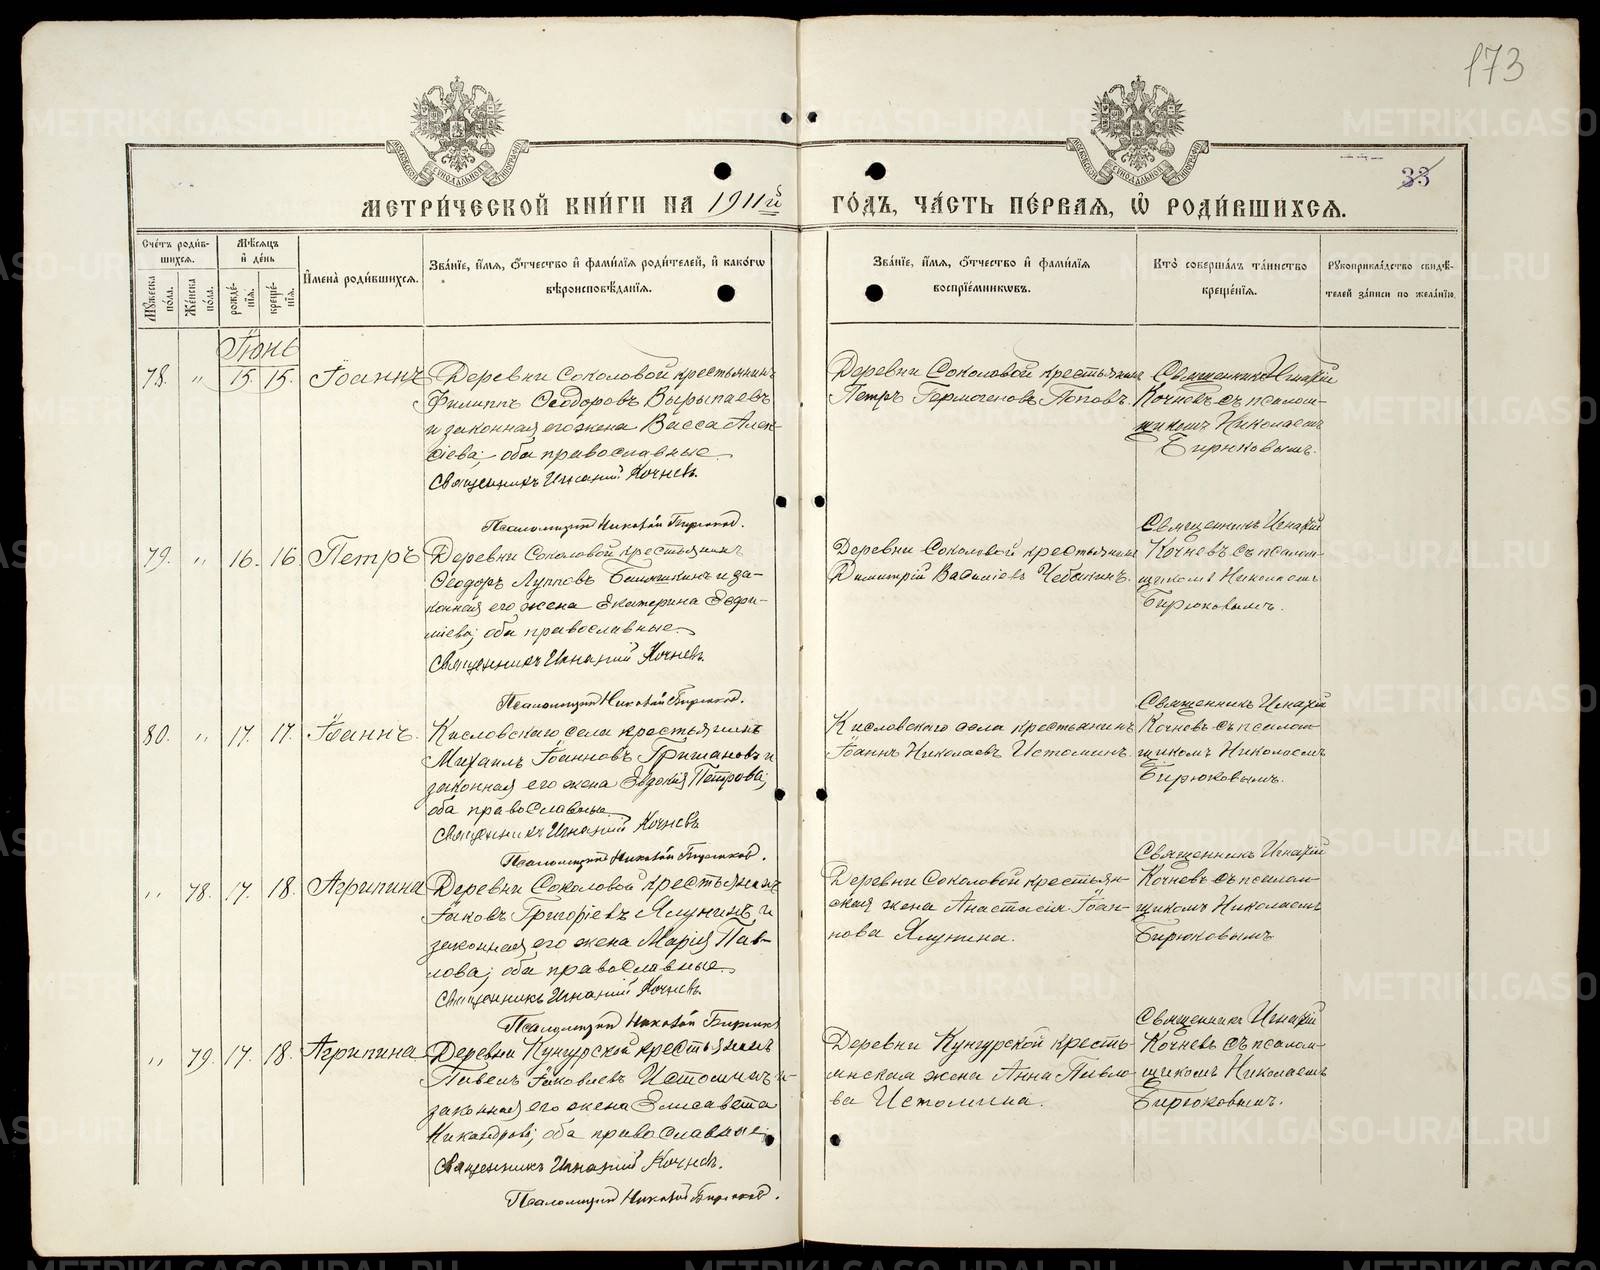 173
33
МЕТРИ́ЧЕСКОЙ КНИ́ГИ НА 1911й ГО́ДЪ, ЧА́СТЬ ПЕ́РВАЯ, Ѡ҆ РОДИ́ВШИХСЯ.
Сче́тъ роди́в-
шихся.
Мꙋ́жеска по́ла.
Же́нска по́ла.
Мѣ́сяцъ
и҆ де́нь
рожде́-
нїя.
креще́-
нїя.
И҆мена̀ роди́вшихся.
Зва́нїе, и҆́мя, ѻ҆́тчество и҆ фами́лїя роди́телей, и҆ како́гѡ
вѣроисповѣ́данїя.
Зва́нїе, и҆́мя, ѻ҆́тчество и҆ фами́лїя
воспрїе́мникѡвъ.
Кто̀ соверша́лъ та́инство
креще́нїя.
Рꙋкоприкла́дство свидѣ́-
телей за́писи по жела́нїю.
Іюнь
78. " 15. 15. Іоаннъ
Деревни Соколовой крестьянинъ
Филиппъ Ѳеодоровъ Вырыпаевъ
и законная его жена Васса Алек-
сіева; оба православные.
Священникъ Игнатій Кочневъ.
Псаломщикъ Николай Бирюков.
Деревни Соколовой крестьянинъ
Петръ Гермогеновъ Поповъ.
Священникъ Игнатій
Кочневъ съ псалом-
щикомъ Николаемъ
Бирюковымъ.
79. " 16. 16. Петръ
Деревни Соколовой крестьянинъ
Ѳеодоръ Лупповъ и за-
конная его жена Екатерина Евфи-
міева; оба православные.
Священникъ Игнатій Кочневъ.
Псаломщикъ Николай Бирюков.
Деревни Соколовой крестьянинъ
Димитрій Василіевъ Чебакинъ.
Священникъ Игнатій
Кочневъ съ псалом-
щикомъ Николаемъ
Бирюковымъ.
80. " 17. 17. Іоаннъ.
Кисловского села крестьянинъ
Михаилъ Іоанновъ Гришановъ и
законная его жена Евдокія Петрова;
оба православные
Священникъ Игнатій Кочневъ
Псаломщикъ Николай Бирюков.
Кисловского села крестьянинъ
Іоаннъ Николаевъ Истоминъ.
Священникъ Игнатій
Кочневъ съ псалом-
щикомъ Николаемъ
Бирюковымъ.
" 78. 17. 18. Агрипина
Деревни Соколовой крестьянинъ
Іаковъ Григоріевъ Ялунинъ и
законная его жена Марія Пав-
лова; оба православные.
Священникъ Игнатій Кочневъ.
Псаломщикъ Николай Бирюков
Деревни Соколовой крестьян-
ская жена Анастасія Іоан-
нова Ялунина.
Священникъ Игнатій
Кочневъ съ псалом-
щикомъ Николаемъ
Бирюковымъ
" 79. 17. 18. Агрипина
Деревни Кунгурской крестьянинъ
Павелъ Іаковлевъ Истоминъ и
законная его жена Елисавета
Никандрова; оба православные;
Священникъ Игнатій Кочневъ.
Псаломщикъ Николай Бирюков.
Деревни Кунгурской кресть-
янская жена Анна Павло-
ва Истомина.
Священникъ Игнатій
Кочневъ съ псалом-
щикомъ Николаемъ
Бирюковымъ.
METRIKI.GASO-URAL.RU